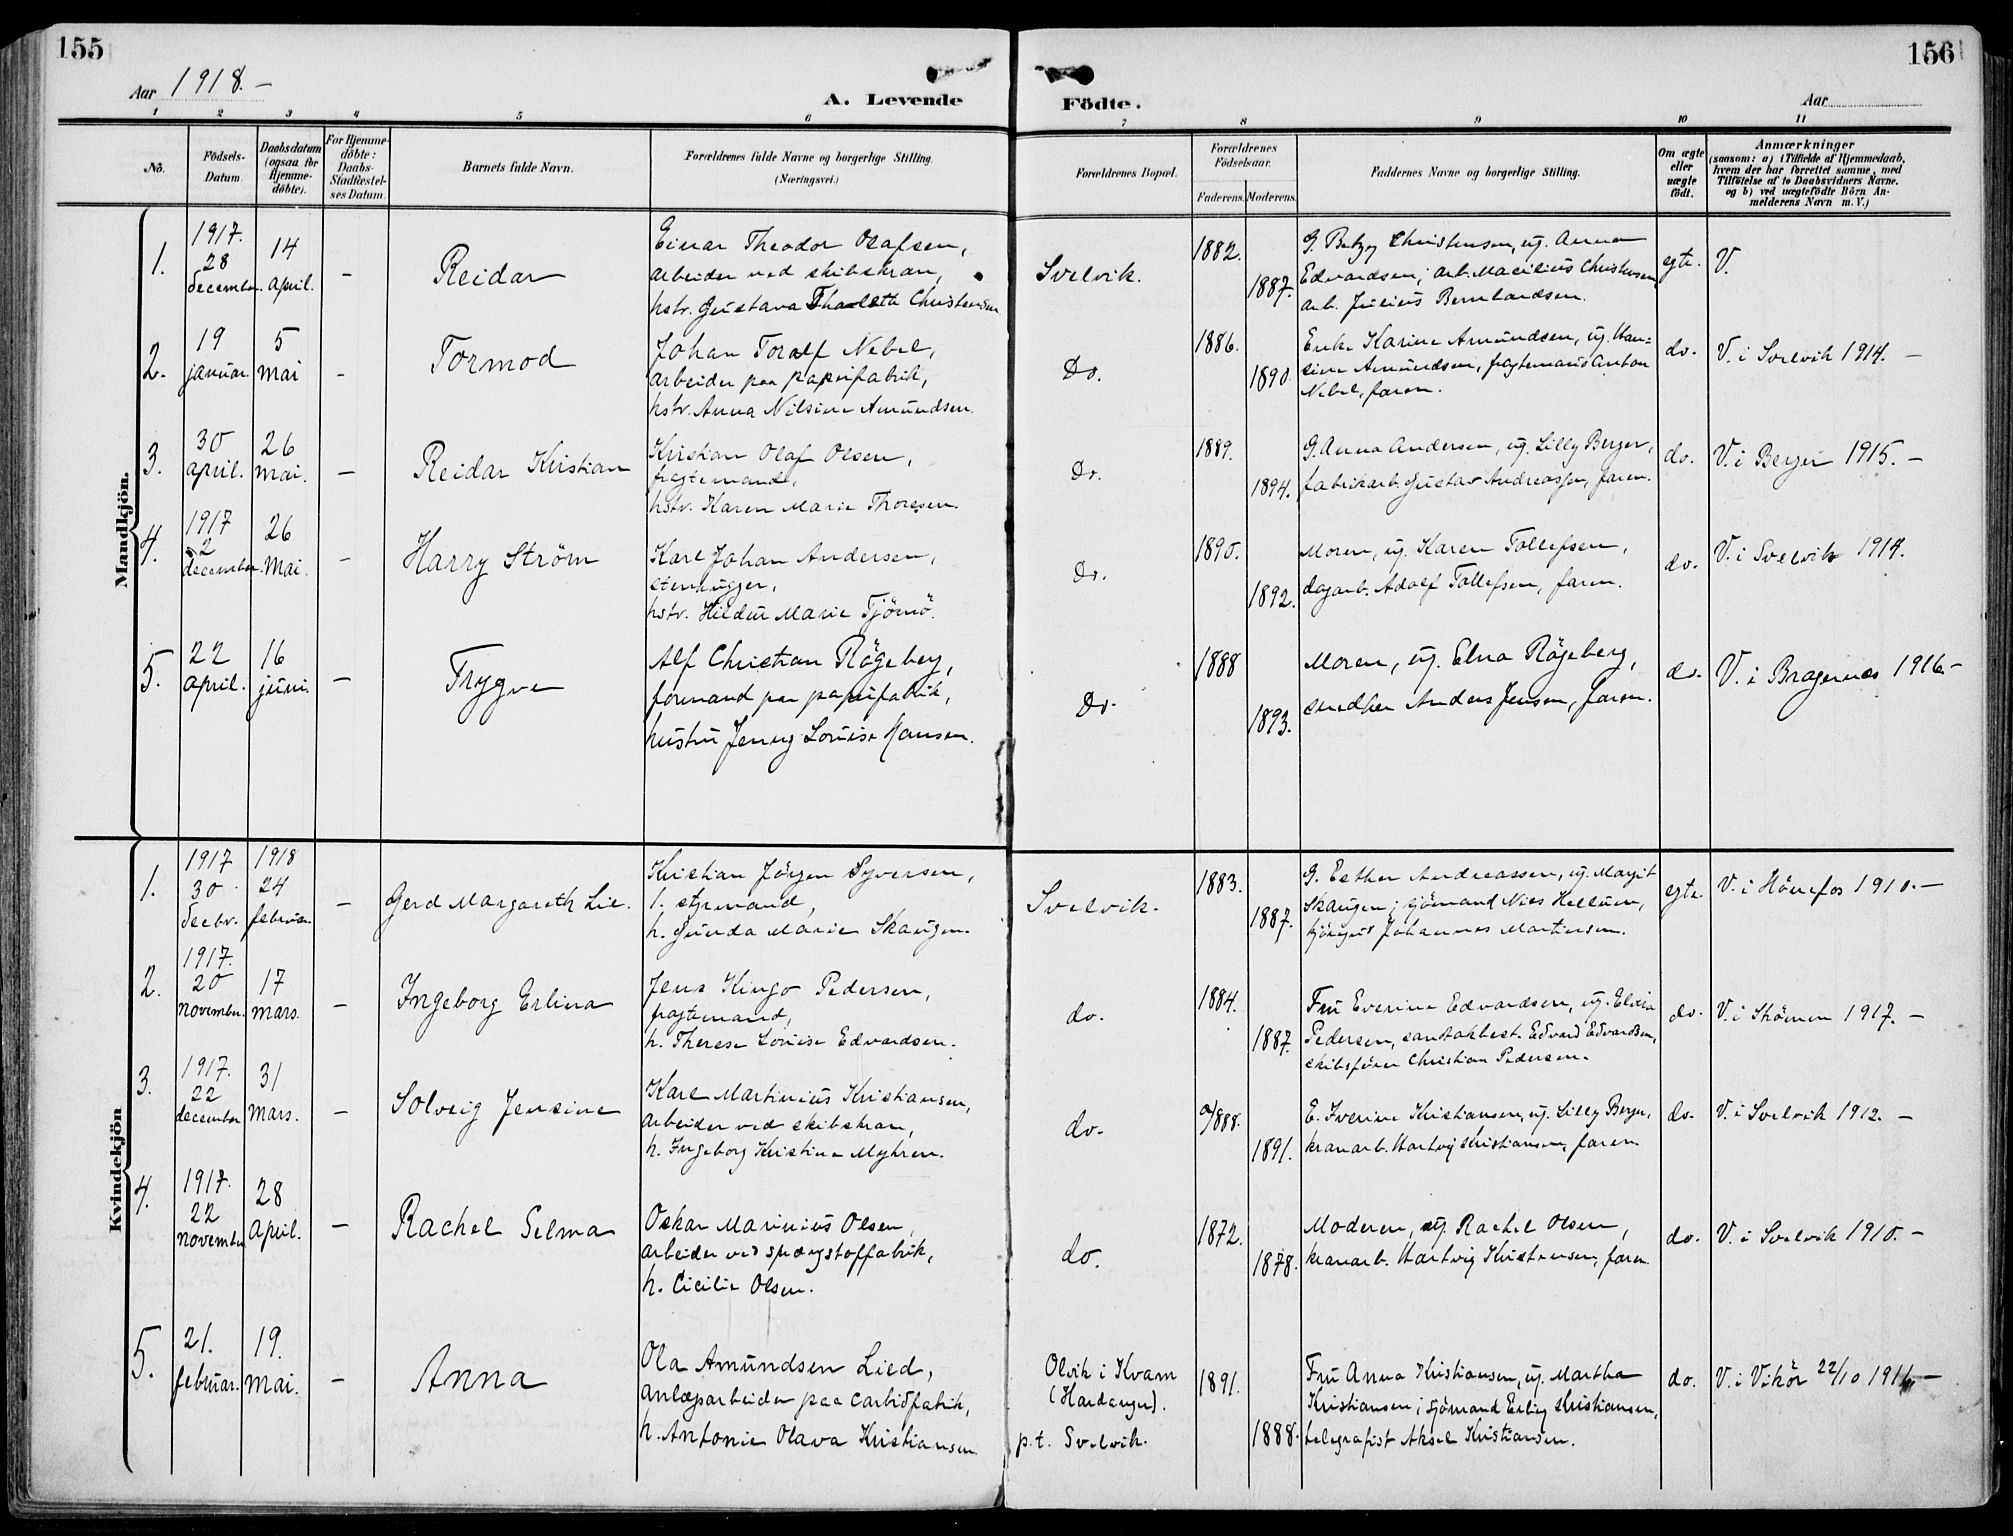 155
156
Aar 1918.–
A. Levende
Födte.
Aar
1 2 3 4 5 6 7 8 9 10 11
No.
Födsels-
Datum.
Daabsdatum
(ogsaa for
Hjemme-
døbte).
For Hjemme-
døbte:
Daabs-
Stadfæstel-
ses Datum.
Barnets fulde Navn.
Forældrenes fulde Navne og borgerlige Stilling.
(Næringsvei.)
Forældrenes Bopæl.
Forældrenes
Födselsaar.
Faderens.
Moderens.
Faddernes Navne og borgerlige Stilling.
Om ægte
eller
uægte
födt.
Anmærkninger
(saasom: a) i Tilfælde af Hjemmedaab,
hvem der har forrettet samme, med
Tilføielse af to Daabsvidners Navne,
og b) ved uægtefödte Börn An-
melderens Navn m. V.)
Mandkjön.
1.
1917.
28
december.
14
april.
–
Reidar
Einar Theodor Olafsen,
arbeider ved skibskran,
hstr. Gustava Charlotte Christensen
Svelvik.
1882.
1887.
G. Betzy Christensen, ug. Anna
Edvardsen; arb. Macilius Christensen
arb. Julius Bernhardsen.
egte.
V.
2.
19
januar.
5
mai
–
Tormod
Johan Toralf Nebel,
arbeider paa papirfabrik,
hstr. Anna Nilsine Amundsen.
Do.
1886.
1890
Enke Karine Amundsen, ug. Han-
sine Amundsen, fragtemand Anton
Nebel, faren.
do.
V. i Svelvik 1914. –
3.
30
april.
26
mai.
–
Reidar Kristian
Kristian Olaf Olsen,
fragtemand,
hstr. Karen Marie Thoresen.
Do.
1889.
1894.
G. Anna Andersen, ug. Lilly Berger,
fabrikarb. Gustav Andreassen, faren.
do.
V. i Berger 1915. –
4.
1917
2
december.
26
Mai.
–
Harry Ström
Karl Johan Andersen,
stenhugger,
hstr. Hildur Marie Tjömö.
Do.
1890.
1892.
Moren, ug. Karen Tollefsen,
dagarb. Adolf Tollefsen, faren.
do.
V. i Svelvik 1914.
5.
22
april.
16
juni.
–
Trygve
Alf Christian Rögeberg,
formand paa papirfabrik,
hustru Jenny Louise Hansen.
Do.
1888
1893.
Moren, ug. Elna Rögeberg,
snedker Anders Jensen, faren.
do.
V. i Bragernes 1916. –
Kvindekjön
1.
1917
30
decbr.
1918
24
februar
–
Gerd Margareth Lie.
Kristian Jörgen Syversen,
1. styrmand,
h. Gunda Marie Skaugen.
Svelvik.
1883.
1887.
G. Esther Andreassen, ug. Margit
Skaugen; sjömand Niels Hellum,
Johannes Martinsen.
egte.
V. i Hönefos 1910. –
2.
1917.
20
november.
17
mars.
–
Ingeborg Erlina
Jens Kingo Pedersen,
fragtemand,
h. Therese Louise Edvardsen.
do.
1884.
1887.
Fru Everine Edvardsen, ug. Elvira
Pedersen, Edvard Edvardsen,
skibsförer Christian Pedersen.
do.
V. i Skömen 1917. –
3.
1917.
22
december
31
Mars.
–
Solveig Jensine
Karl Martinius Kristiansen,
arbeider ved skibskran,
h. Ingeborg Kristine Myhren.
do.
1888.
1891.
E. Iverine Kristiansen, ug. Lilly Berger,
kranarb. Hartvig Kristiansen, faren
do.
V. i Svelvik 1912. –
4.
1917.
22
november
28
April.
–
Rachel Selma
Oskar Marinius Olsen,
arbeider ved sprængstoffabrik,
h. Cicilie Olsen.
do.
1872.
1878.
Moderen, ug. Rachel Olsen,
kranarb. Hartvig Kristensen, faren.
do.
V. i Svelvik 1910. –
5.
21.
februar.
19.
mai.
–
Anna
Ola Amundsen Lied,
anlægsarbeider paa carbidfabrik,
h. Antonie Olava Kristiansen
Olvik i Kvam
(Hardanger).
p.t. Svelvik.
1891.
1888.
Fru Anna Kristiansen, ug. Martha
Kristiansen; sjömand Erling Kristiansen,
telegrafist Aksel Kristiansen.
do.
V. i Vikör 22/10 1911. –